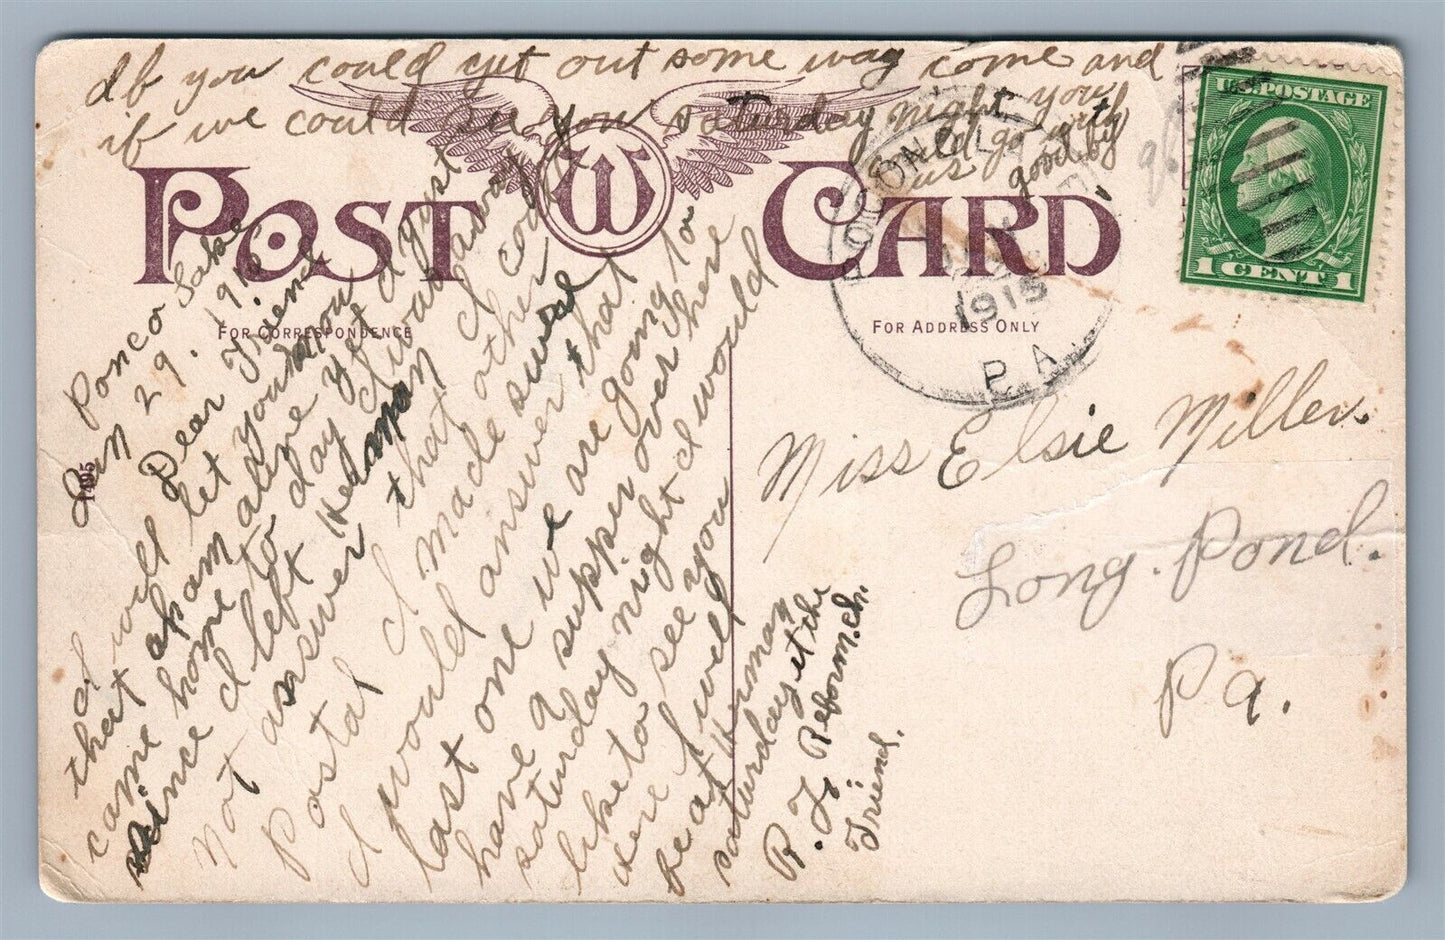 If you could cut out some way come and
if we could see you Saturday night you
could go with
us
good by
POST CARD
W
FOR CORRESPONDENCE
FOR ADDRESS ONLY
U.S. POSTAGE
1 CENT 1
POCONO L
1915
PA.
1495
Ponco Lake
Jun 29. 191
Dear Friend
I will let you know
that I am alone
came home to day yet I just
since I left
I was away
Not answer that other
Postal I could
I made
I would answer that
last one we are going to
have a supper over here
saturday night I would
like to see you
here I will
be at
saturday at the
R. F. Reform. ch.
Friend.
Miss Elsie Miller.
Long. Pond.
Pa.